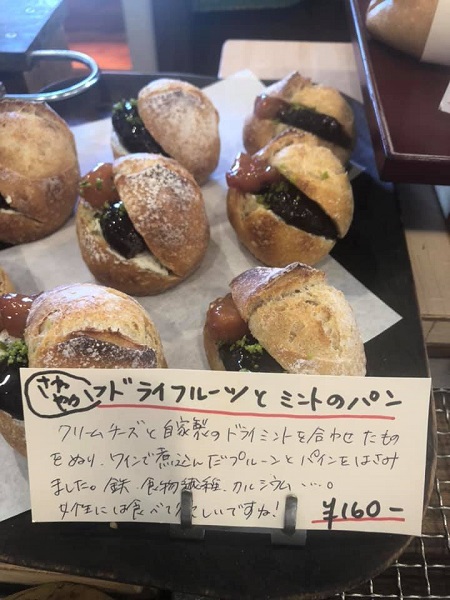 さわやか ドライフルーツとミントのパン
クリームチーズと自家製のドライミントを合わせたもの
をぬり、ワインで煮込んだプルーンとパインをはさみ
ました。鉄、食物繊維、カルシウム…。
女性には食べてほしいですね!
¥160-